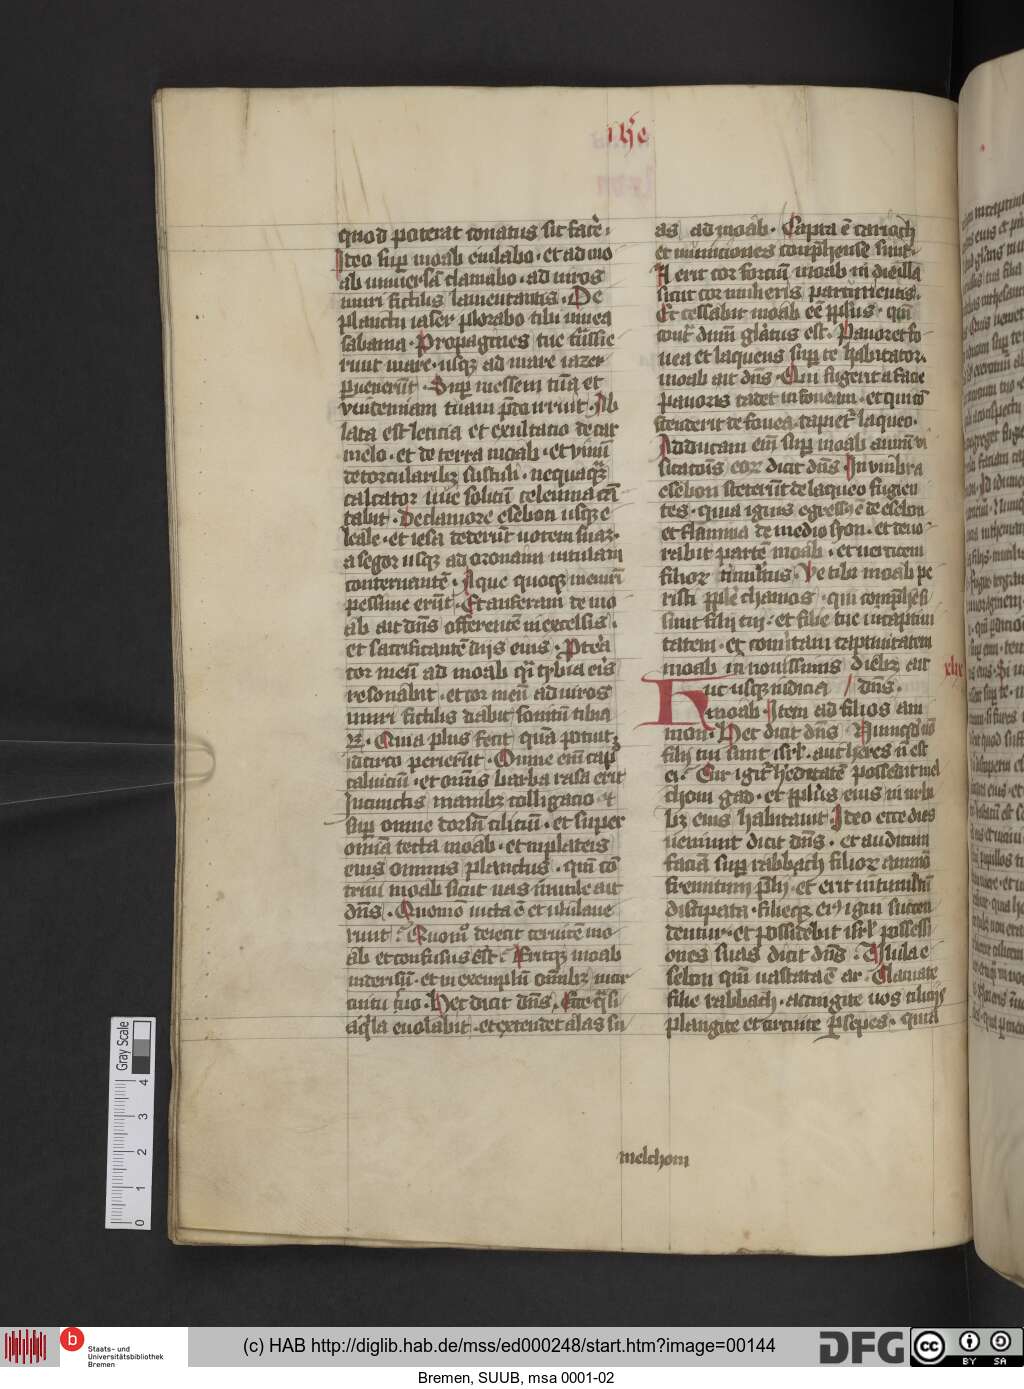 ihe
quod poterat conatus sit facere.
Ideo sup moab eiulabo. et ad mo
ab universā clamabo. ad viros
muri fictilis lamentantis. De
planctu iaser plorabo tibi vinea
sabama. Propagines tue trāsie
runt mare. usqȝ ad mare iazer
pvenerūt. Sup messem tuā et
vindemiam tuam pdo irruit. Ab
lata est leticia et exultacio de car
melo. et de terra moab. et vinū
de torcularibȝ sustuli. nequaqȝ
calcator uve solitū celeuma cā
tabit. De clamore esebon usqȝ e
leale. et iesa dederūt vocem suā.
a segor usqȝ ad oronaim vitulam
conternantē. Aque quoqȝ nemrī
pessime erūt. Et auferam de mo
ab ait dn̄s offerentē in excelsis.
et sacrificantē diis eius. Pterea
cor meū ad moab qi tibia eris
resonabit. et cor meū ad viros
muri fictilis dabit sonitū tibia
rū. Quia plus fecit quā potuit
idcirco perierūt. Omne enī cap
calviciū. et omīs barba rasa erit
In cunctis manibȝ colligacio et
sup omne dorsū ciliciū. et super
omīa tecta moab. et in plateis
eius omnis planctus. qm̄ cō
trivi moab sicut vas inutile ait
dn̄s. Quomō victa ē et ululave
runt. Quomō deiecit cervicē mo
ab et confusus est. Eritqȝ moab
in derisū. et in exemplū om̄ibȝ in cir
cuitu suo. Hec dicit dn̄s. Ecce qsi
aqla evolabit. et extendet alas su
as ad moab. Capta ē carioth
et municiones compħense sunt.
Et erit cor fortiū moab in die illa
sicut cor mulieris parturientis.
Et cessabit moab eē ppls. qm̄
contr dnm̄ gliatus est. Pavor et fo
vea et laqueus sup te habitator.
moab ait dn̄s. Qui fugerit a facie
pavoris cadet in foveam. et qui cō
scenderit de fovea. capiet laqueo.
Adducam enī sup moab annū vi
sitacōnis eorꝝ dicit dn̄s. In umbra
esebon steterūt de laqueo fugien
tes. quia ignis egressꝰ ē de esebon
et flamma de medio syon. et devo
rabit partē moab. et verticem
filiorꝝ tumltus. Ve tibi moab pe
risti pple chamos. qui compħesi
sunt filij tui. et filie tue in captivi
tatem. et convertam captivitatem
moab in novissimis diebȝ ait
xlix
Huc usqȝ iudicia / dn̄s.
moab. Item ad filios am
mon. Hec dicit dn̄s Numqd nō
filij sunt isrl. aut heres nō est
ei. Cur igit hereditatē possedit mel
chom gad. et ppls eius in urbi
bȝ eius habitavit. Ideo ecce dies
veniunt dicit dn̄s. et auditum
faciā sup rabbach filiorꝝ ammō
fremitum plij. et erit in tumltū
dissipata. filieqȝ eiꝰ igni succen
dentur. et possidebit isrl possessi
ones suas dicit dn̄s. Ulula e
sebon qm̄ vastata ē ar. Clamate
filie rabbach. accingite vos cilicijs
plangite et circuite p sepes. quia
melchom
Gray Scale
4
3
2
1
0
Staats- und
Universitätsbibliothek
Bremen
(c) HAB http://diglib.hab.de/mss/ed000248/start.htm?image=00144
DFG
CC
BY SA
Bremen, SUUB, msa 0001-02